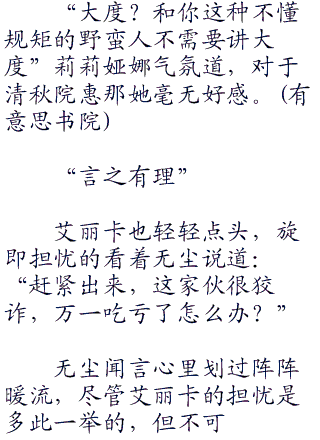 “大度？和你这种不懂
规矩的野蛮人不需要讲大
度”莉莉娅娜气氛道，对于
清秋院惠那她毫无好感。(有
意思书院)
“言之有理”
艾丽卡也轻轻点头，旋
即担忧的看着无尘说道：
“赶紧出来，这家伙很狡
诈，万一吃亏了怎么办？”
无尘闻言心里划过阵阵
暖流，尽管艾丽卡的担忧是
多此一举的，但不可